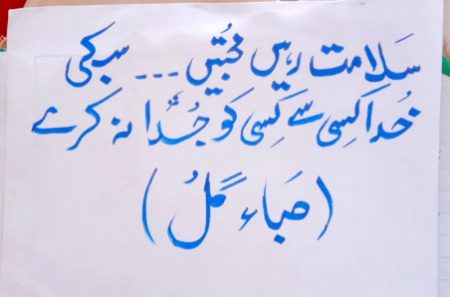 سَلامت رہیں محبتیں --- سبکی
خُدا کِسی سے کِسی کو جُدا نہ کرے
(صَباء گُل)